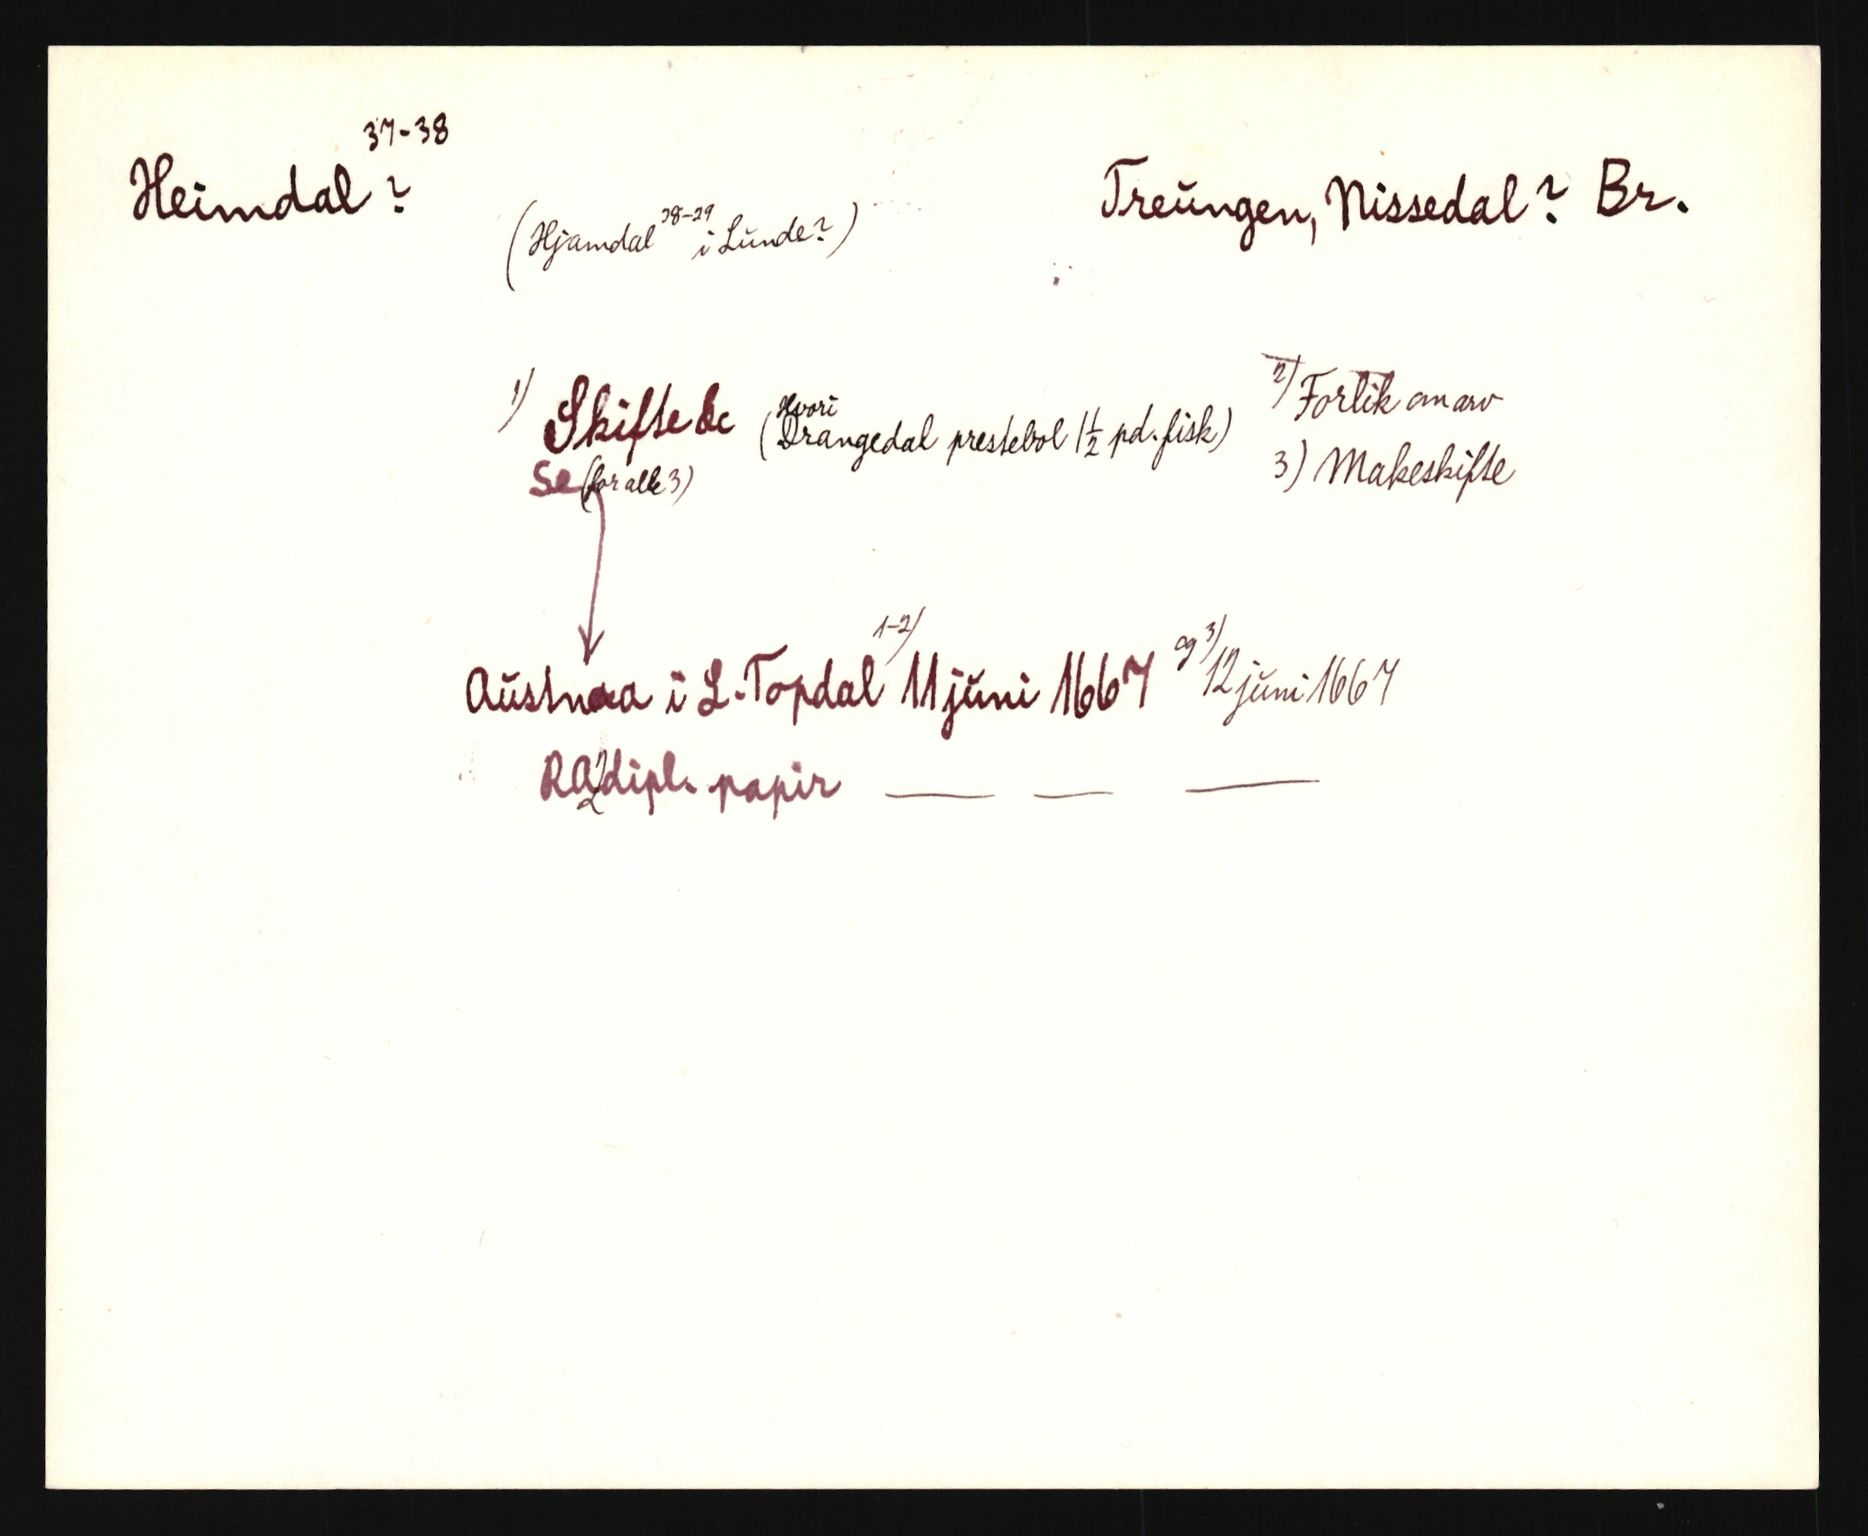 Heimdal 37-38 ?
(Hjamdal 38-29 i Lunde?)
Treungen, Nissedal? Br.
1) Skifte (Hvori Drangedal prestebol 1½ pd. fisk)
2) Forlik om arv
3) Makeskifte
Se (for alle 3)
i L. Topdal 1-2) 11 juni 1667 og 3) 12 juni 1667
RA 2 dipl. papir — — —